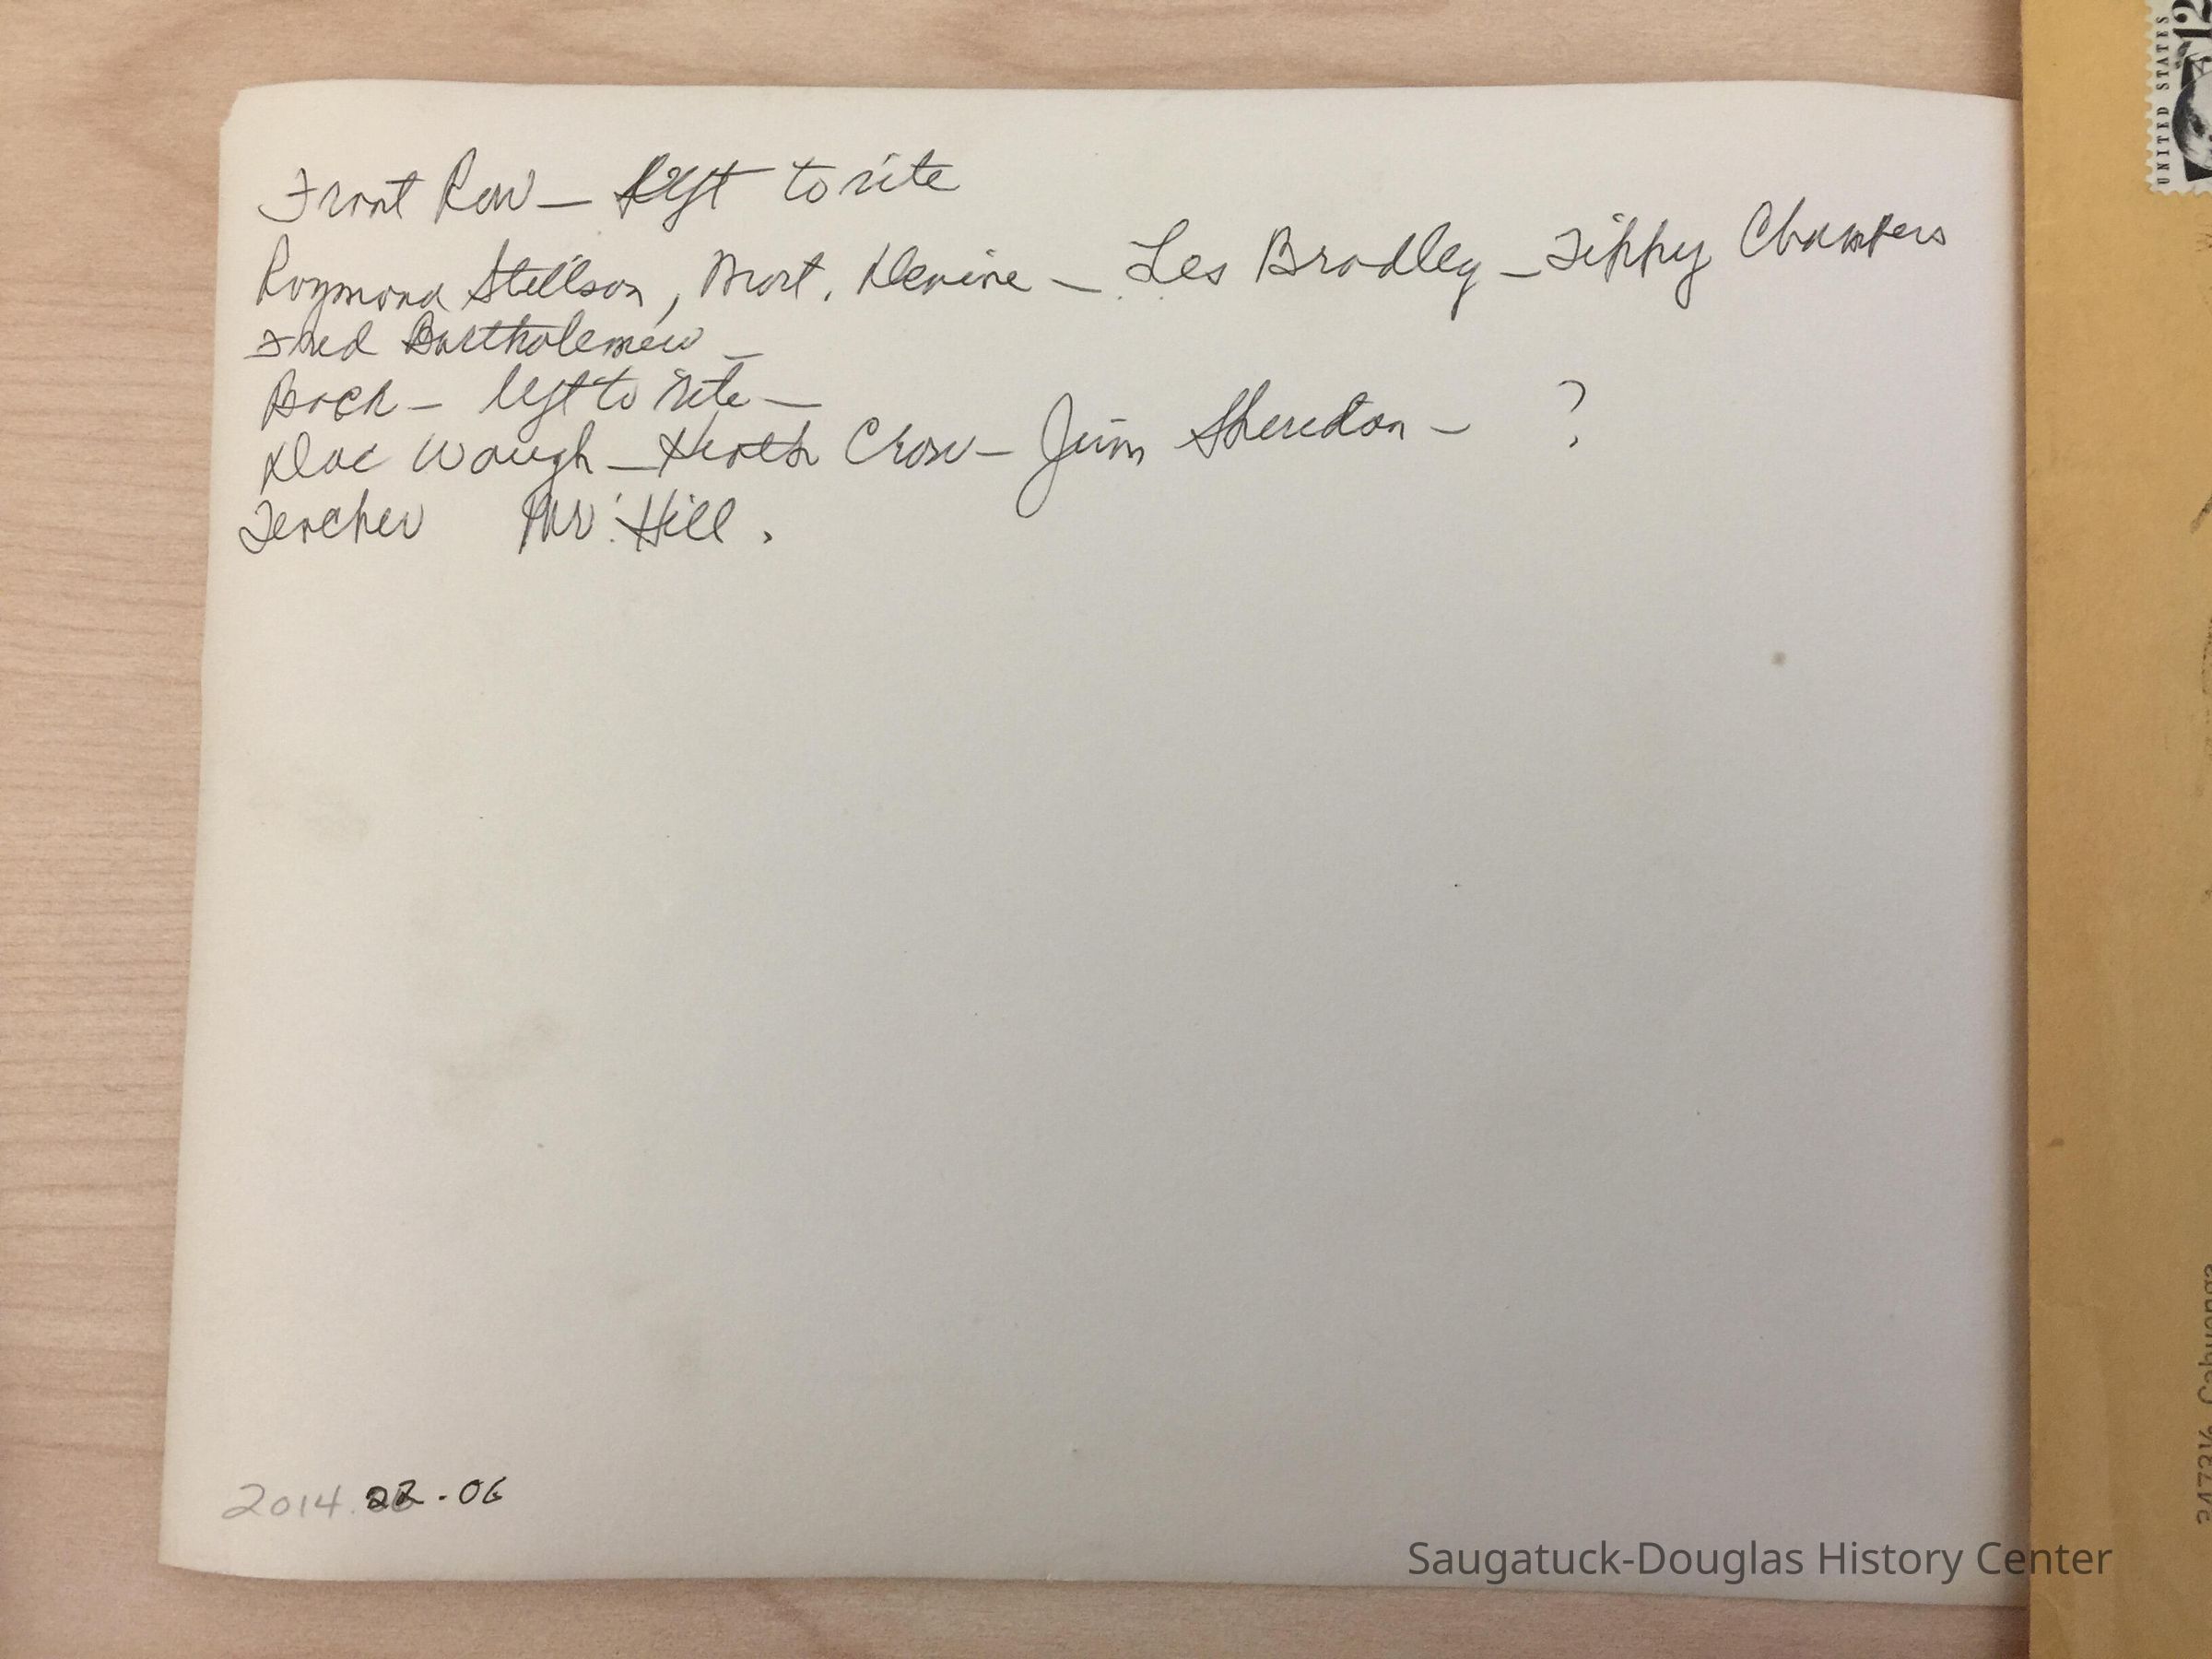 Front Row — left to rite
Raymond Stillson, Mort. Devine — Les Bradley — Tippy Chambers
Fred Bartholemew —
Back — left to rite —
Doc Waugh — Heath Crow — Jim Sheridan — ?
Teacher Mr. Hill.
2014.22-06
Saugatuck-Douglas History Center
UNITED STATES
12
Cahuenga